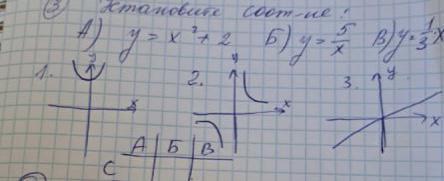 ③ Установите соот-ие:
А) y = x² + 2 Б) y = 5/x В) y = 1/3 x
1. y x 2. y x 3. y x
А Б В
С